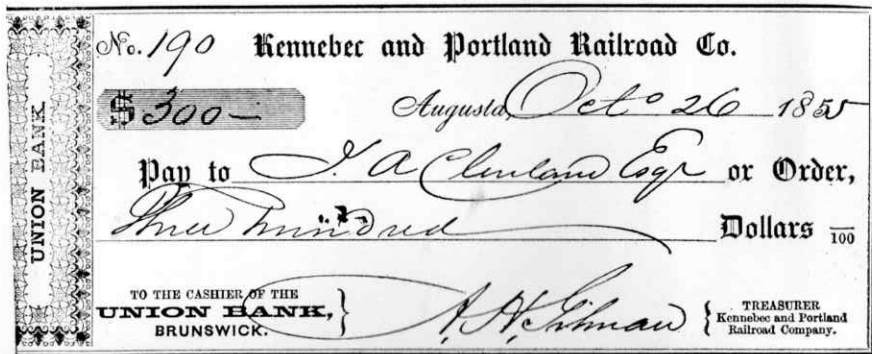 UNION BANK.
No. 190 Kennebec and Portland Railroad Co.
$ 300 — Augusta, Octo 26 1855
Pay to A Cleveland Esqr or Order,
Three Hundred Dollars /100
TO THE CASHIER OF THE
UNION BANK,
BRUNSWICK.
TREASURER
Kennebec and Portland
Railroad Company.